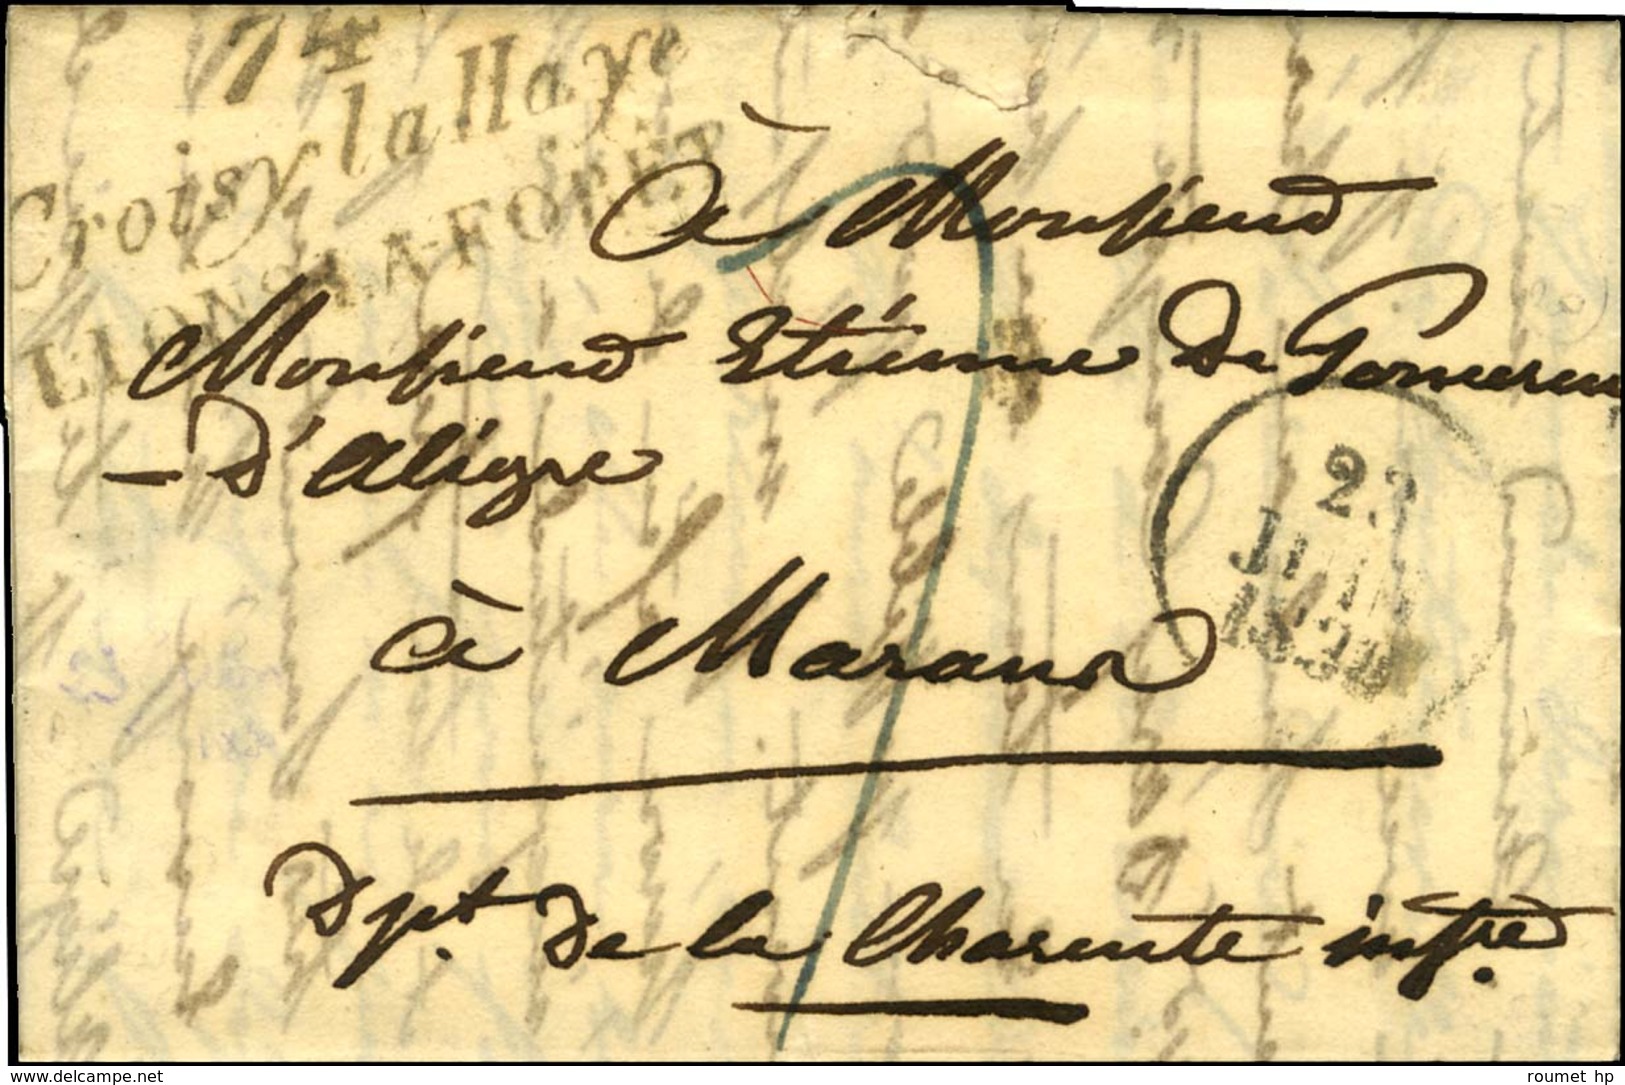 74
Croisy la Haye
LIONS-LA-FORÊT
à Monsieur
Monsieur Etiénne de
- D'Aligre
23
JUIN
à Marans
Dpt. de la Charente infre
www.delcampe.net
roumet hp